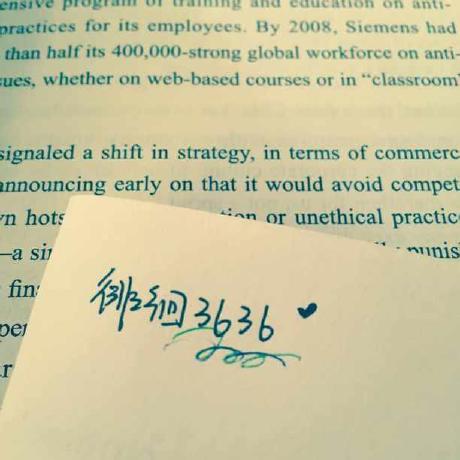 ensive program of training and education on anti-
practices for its employees. By 2008, Siemens had
than half its 400,000-strong global workforce on anti-
sues, whether on web-based courses or in “classroom”
signaled a shift in strategy, in terms of commerc
announcing early on that it would avoid compet
vn hots tion or unethical practic
—a sin punis
fin
per
徘徊3636 ♥